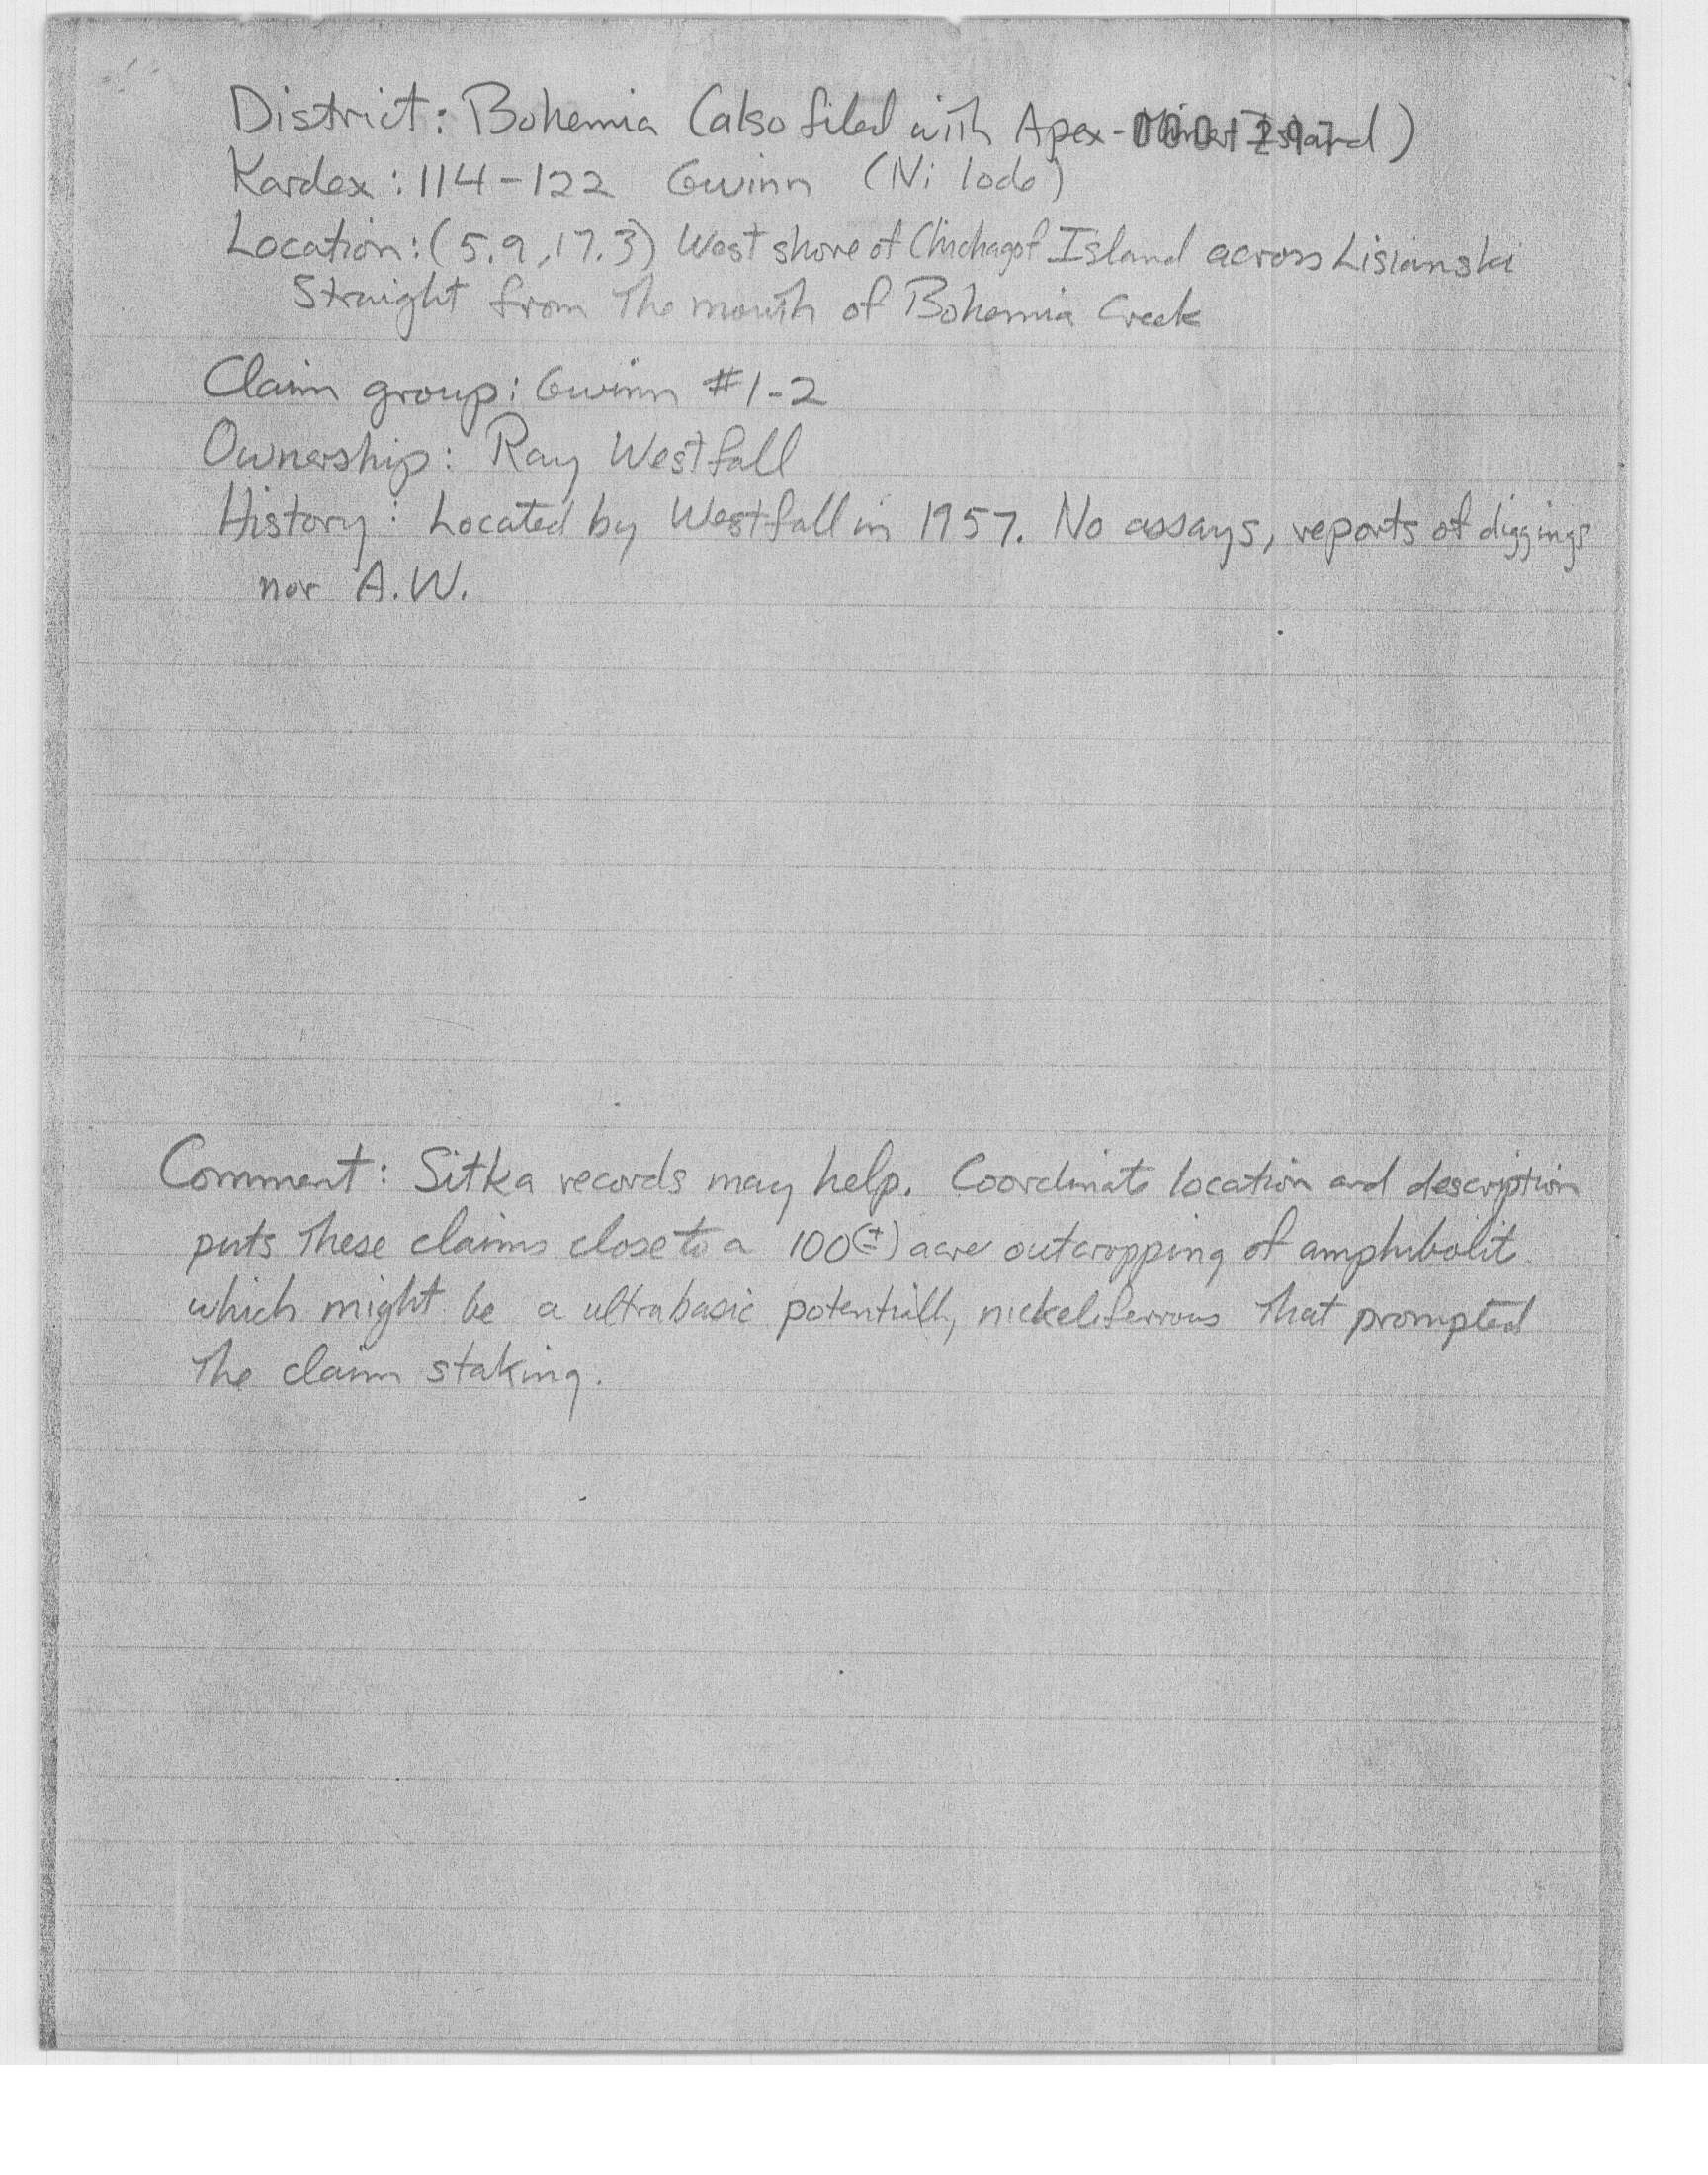 District: Bohemia (also filed with Apex- Island)
Kardex: 114-122 Gwinn (Ni lode)
Location: (5.9, 17.3) West shore of Chichagof Island across Lisianski
Straight from the mouth of Bohemia Creek
Claim group: Gwinn #1-2
Ownership: Ray Westfall
History: Located by Westfall in 1957. No assays, reports of diggings
nor A.W.
Comment: Sitka records may help. Coordinate location and description
puts these claims close to a 100(±) acre outcropping of amphibolit
which might be a ultrabasic potentially nickeliferrous that prompted
the claim staking.